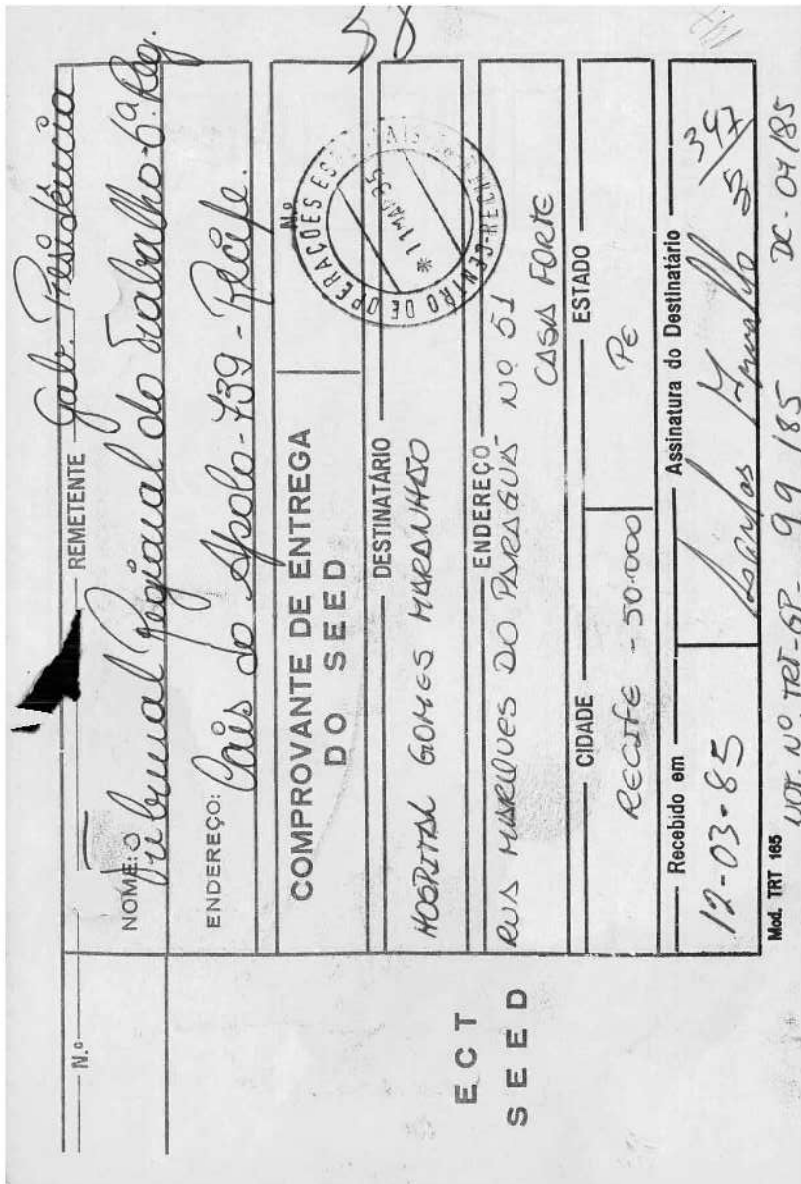 58
N.º
REMETENTE Gab. Presidência
NOME: Tribunal Regional do Trabalho-6ª Reg.
ENDEREÇO: Cais do Apolo-739-Recife.
COMPROVANTE DE ENTREGA
DO SEED
N.º
CENTRO DE OPERAÇÕES
RECIFE
* 11 MAR 85
ECT
SEED
DESTINATÁRIO
HOSPITAL GOMES MARANHÃO
ENDEREÇO
RUA MARQUES DO PARAGUAI Nº 51
CASA FORTE
CIDADE
ESTADO
RECIFE - 50.000
PE
Recebido em
Assinatura do Destinatário
12-03-85
Mod. TRT 165
NOT. Nº TRT-GP- 99 / 85
DC-04/85